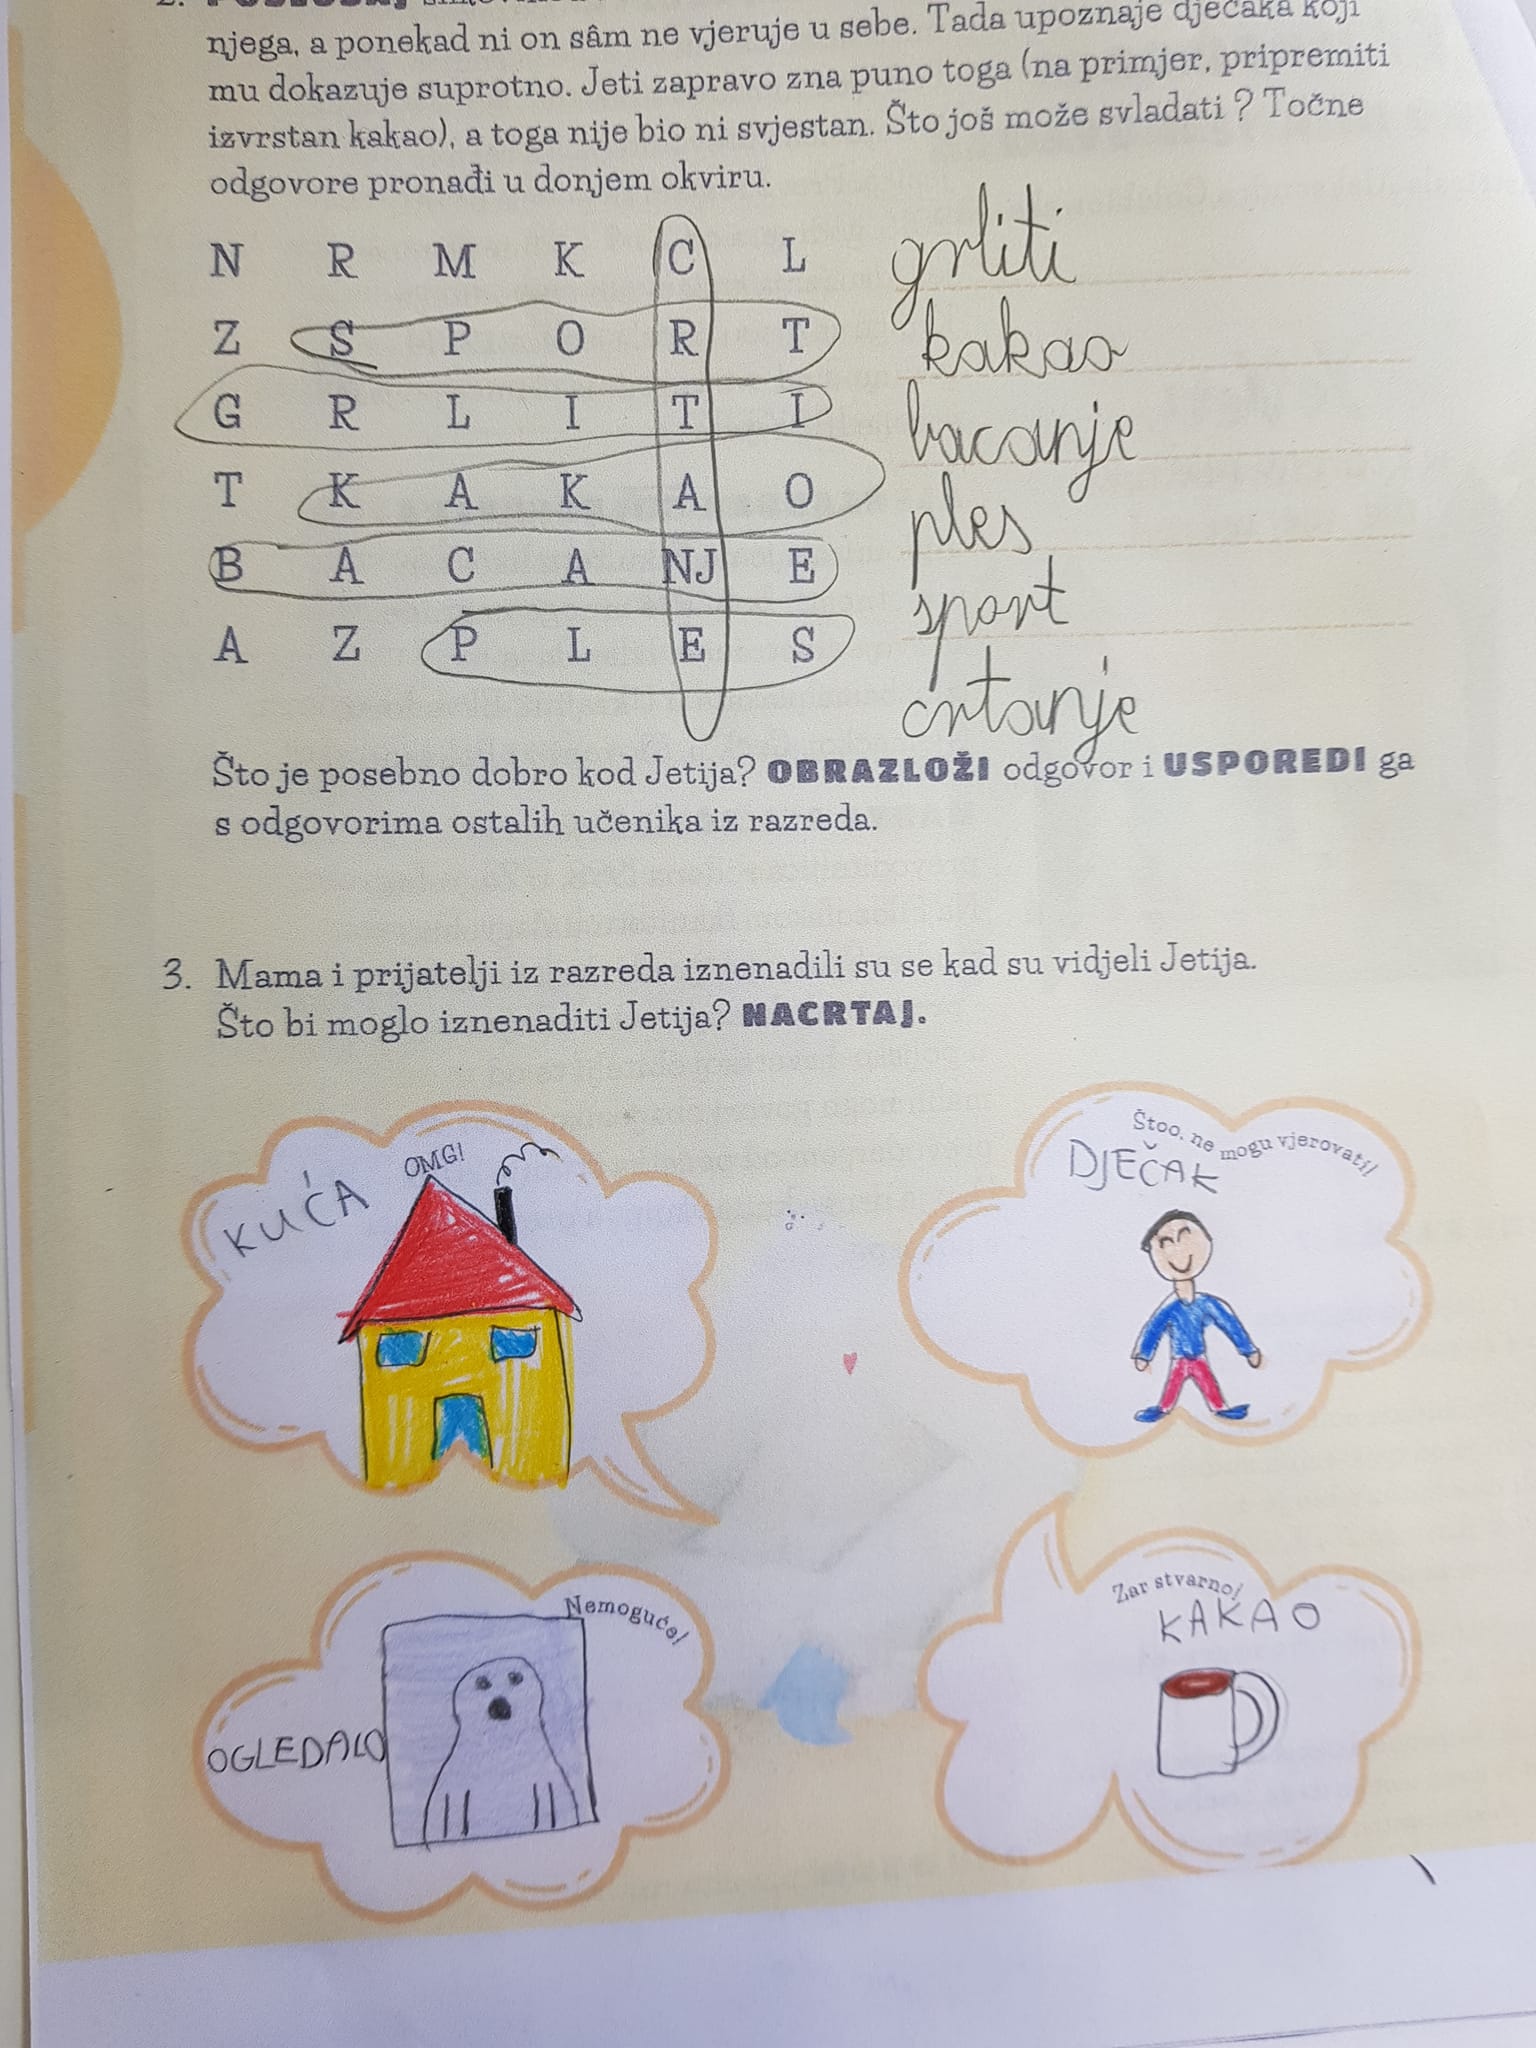 njega, a ponekad ni on sâm ne vjeruje u sebe. Tada upoznaje dječaka koji
mu dokazuje suprotno. Jeti zapravo zna puno toga (na primjer, pripremiti
izvrstan kakao), a toga nije bio ni svjestan. Što još može svladati? Točne
odgovore pronađi u donjem okviru.
N R M K C L grliti
Z S P O R T kakao
G R L I T I bacanje
T K A K A O ples
B A C A NJ E sport
A Z P L E S crtanje
Što je posebno dobro kod Jetija? OBRAZLOŽI odgovor i USPOREDI ga
s odgovorima ostalih učenika iz razreda.
3. Mama i prijatelji iz razreda iznenadili su se kad su vidjeli Jetija.
Što bi moglo iznenaditi Jetija? NACRTAJ.
OMG!
KUĆA
Štoo, ne mogu vjerovati!
DJEČAK
Nemoguće!
OGLEDALO
Zar stvarno!
KAKAO